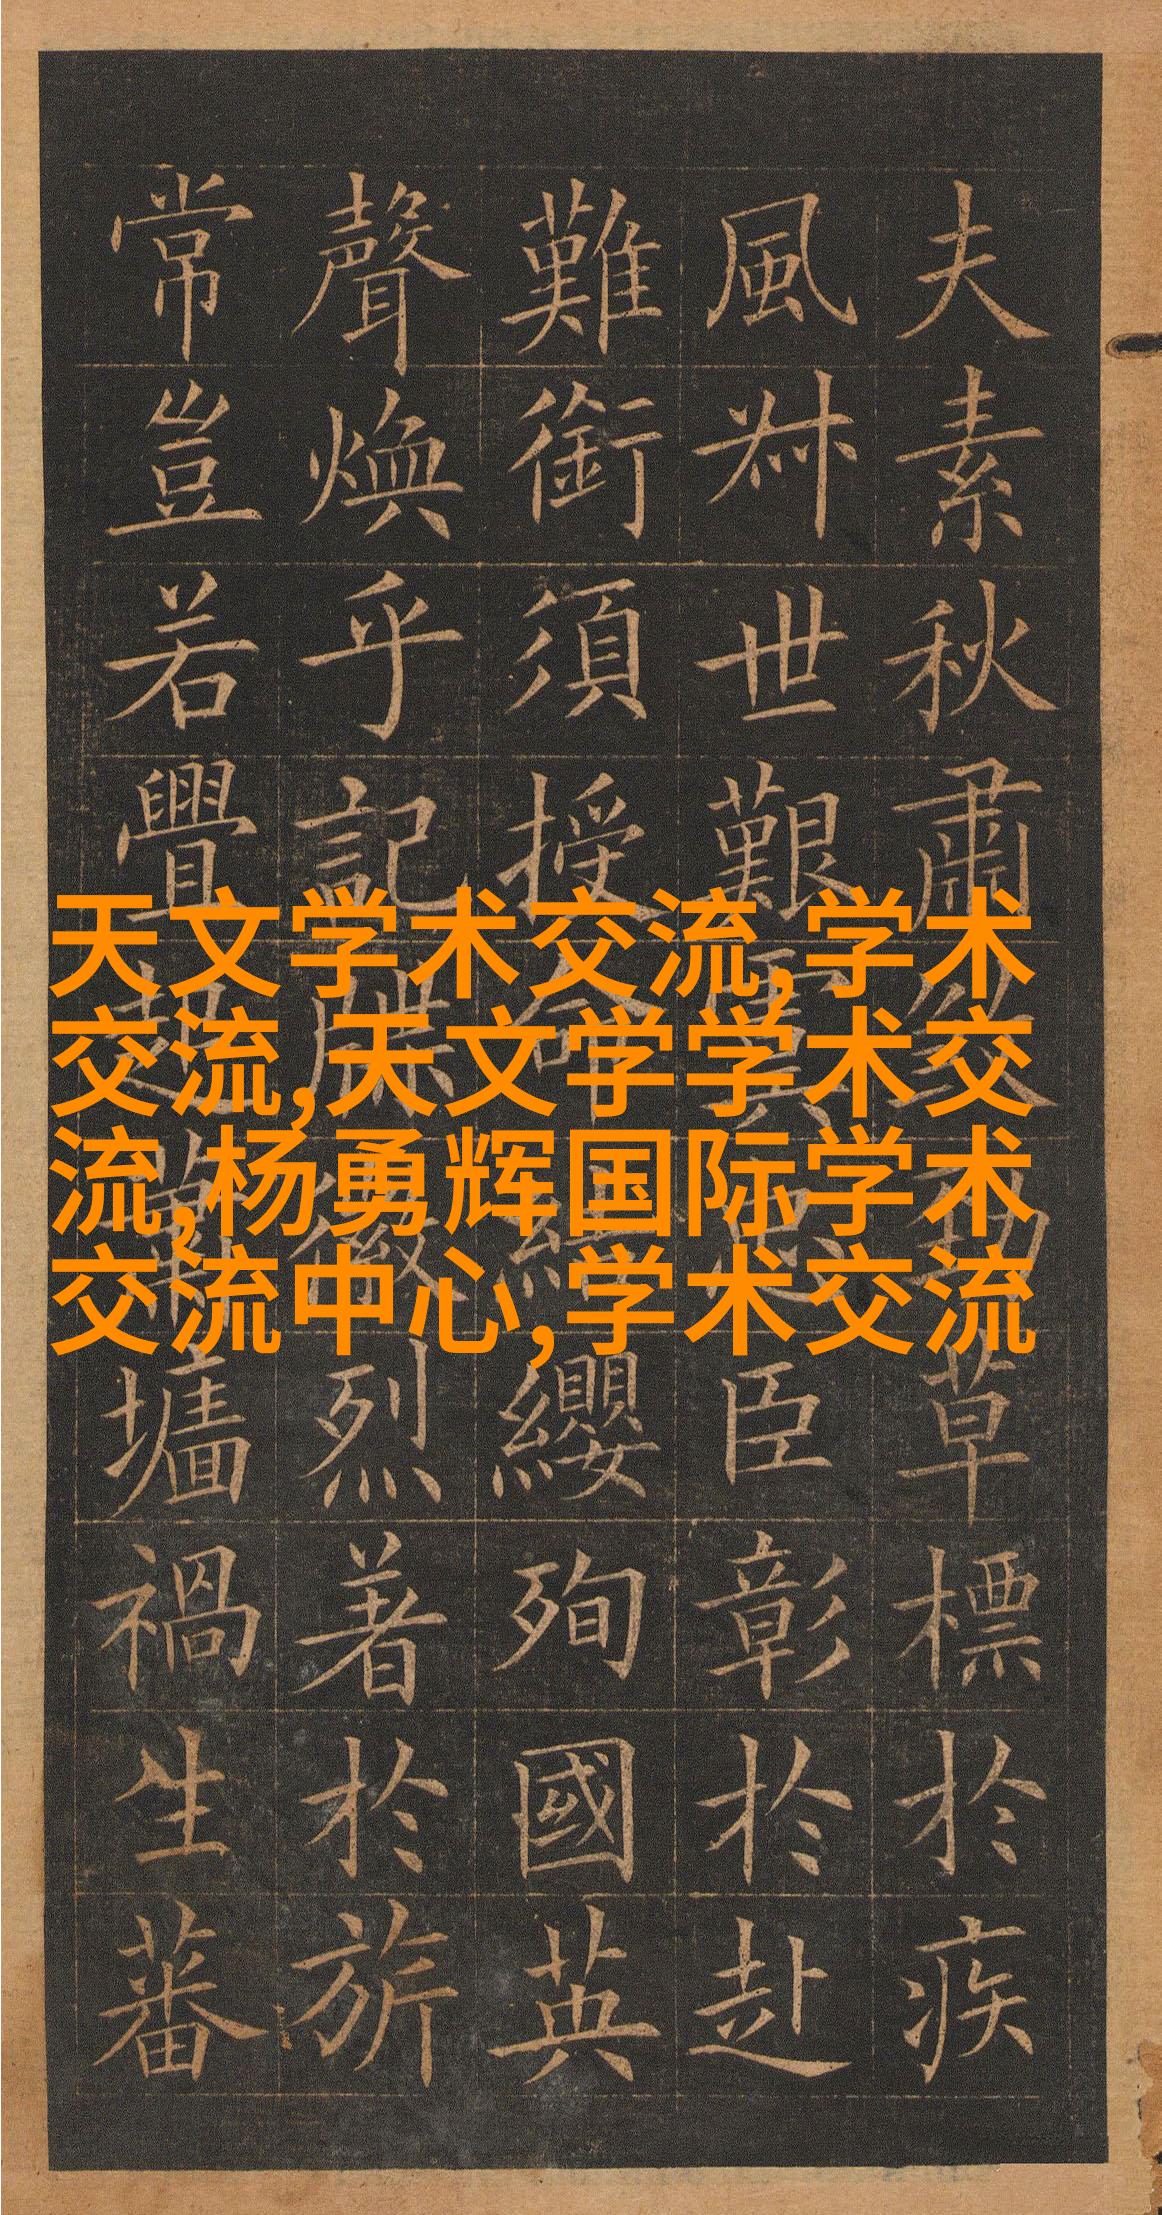 夫素秋肅煞勁草標於疾
風叔世艱虞忠臣彰於赴
難銜須授命結纓殉國英
聲煥乎記牒徽烈著於旂
常豈若舋起蕭墻禍生蕃
天文学术交流,学术
交流,天文学学术交
流,杨勇辉国际学术
交流中心,学术交流